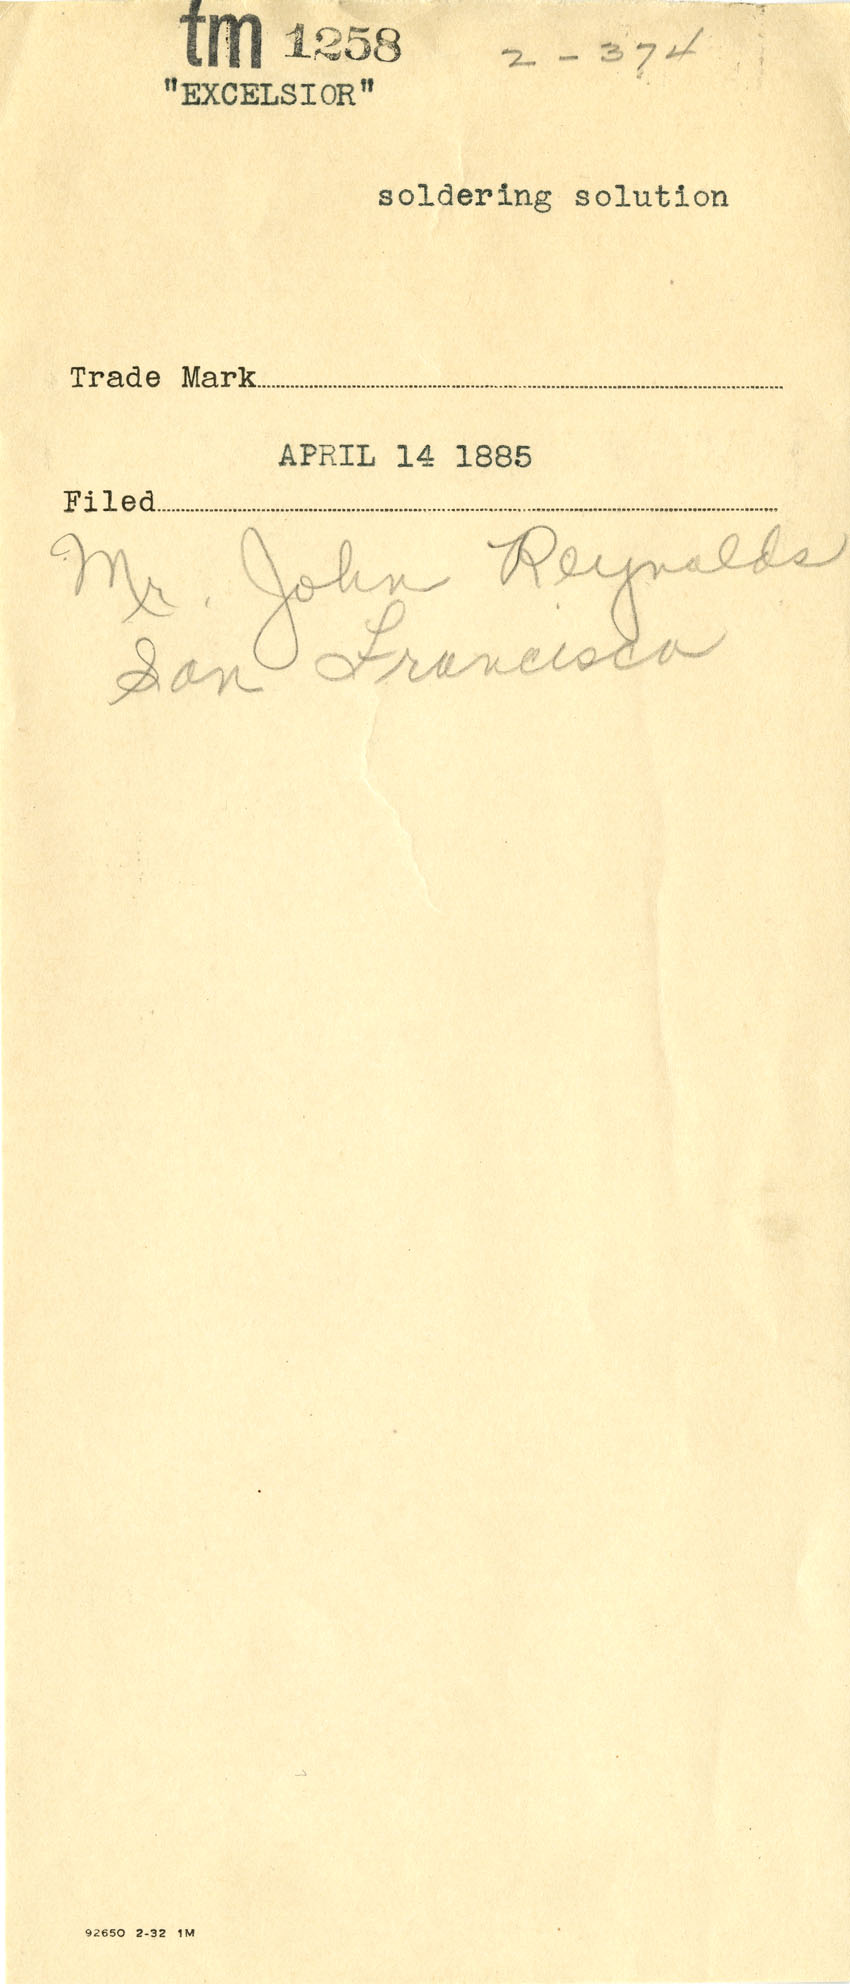 tm 1258 2 - 374
"EXCELSIOR"
soldering solution
Trade Mark
APRIL 14 1885
Filed
Mr. John Reynolds
San Francisco
92650 2-32 1M